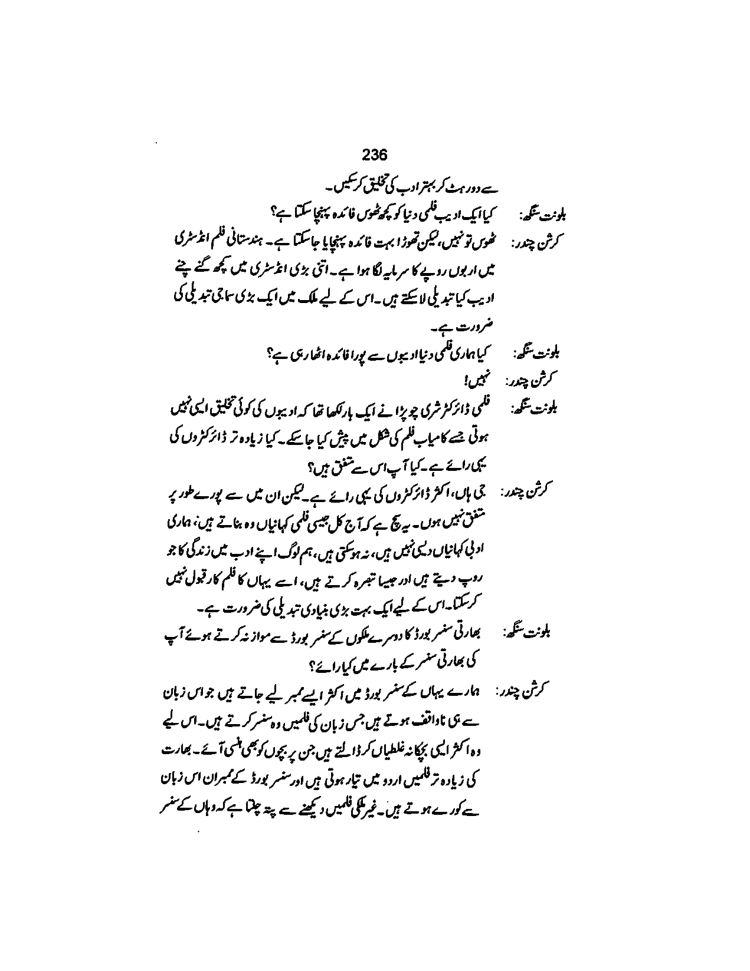 236
سے دور ہٹ کر بہتر ادب کی تخلیق کرسکیں۔
بلونت سنگھ: کیا ایک ادیب فلمی دنیا کو کچھ ٹھوس فائدہ پہنچا سکتا ہے؟
کرشن چندر: ٹھوس تو نہیں، لیکن تھوڑا بہت فائدہ پہنچایا جاسکتا ہے۔ ہندستانی فلم انڈسٹری
میں اربوں روپے کا سرمایہ لگا ہوا ہے۔ اتنی بڑی انڈسٹری میں کچھ گنے چنے
ادیب کیا تبدیلی لاسکتے ہیں۔ اس کے لیے ملک میں ایک بڑی سماجی تبدیلی کی
ضرورت ہے۔
بلونت سنگھ: کیا ہماری فلمی دنیا ادیبوں سے پورا فائدہ اٹھا رہی ہے؟
کرشن چندر: نہیں!
بلونت سنگھ: فلمی ڈائرکٹر شری چوپڑا نے ایک بار لکھا تھا کہ ادیبوں کی کوئی تخلیق ایسی نہیں
ہوتی جسے کامیاب فلم کی شکل میں پیش کیا جاسکے۔ کیا زیادہ تر ڈائرکٹروں کی
یہی رائے ہے۔ کیا آپ اس سے متفق ہیں؟
کرشن چندر: جی ہاں، اکثر ڈائرکٹروں کی یہی رائے ہے۔ لیکن ان میں سے پورے طور پر
متفق نہیں ہوں۔ یہ سچ ہے کہ آج کل جیسی فلمی کہانیاں وہ بناتے ہیں، ہماری
ادبی کہانیاں ویسی نہیں ہیں، نہ ہوسکتی ہیں، ہم لوگ اپنے ادب میں زندگی کا جو
روپ دیتے ہیں اور جیسا تبصرہ کرتے ہیں، اسے یہاں کا فلم کار قبول نہیں
کرسکتا۔ اس کے لیے ایک بہت بڑی بنیادی تبدیلی کی ضرورت ہے۔
بلونت سنگھ: بھارتی سنسر بورڈ کا دوسرے ملکوں کے سنسر بورڈ سے موازنہ کرتے ہوئے آپ
کی بھارتی سنسر کے بارے میں کیا رائے؟
کرشن چندر: ہمارے یہاں کے سنسر بورڈ میں اکثر ایسے ممبر لیے جاتے ہیں جو اس زبان
سے ہی ناواقف ہوتے ہیں جس زبان کی فلمیں وہ سنسر کرتے ہیں۔ اس لیے
وہ اکثر ایسی بچکانہ غلطیاں کر ڈالتے ہیں جن پر بچوں کو بھی ہنسی آئے۔ بھارت
کی زیادہ تر فلمیں اردو میں تیار ہوتی ہیں اور سنسر بورڈ کے ممبران اس زبان
سے کورے ہوتے ہیں۔ غیر ملکی فلمیں دیکھنے سے پتہ چلتا ہے کہ وہاں کے سنسر